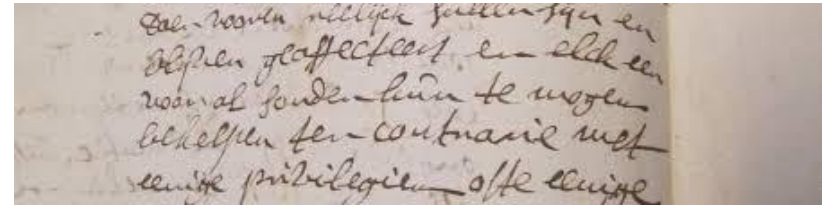 daer vooren reelijck sullen syn en
blyven geaffecteert en elck een
voor al sonder hun te mogen
behelpen ter contrarie met
eenige privilegien ofte eenige